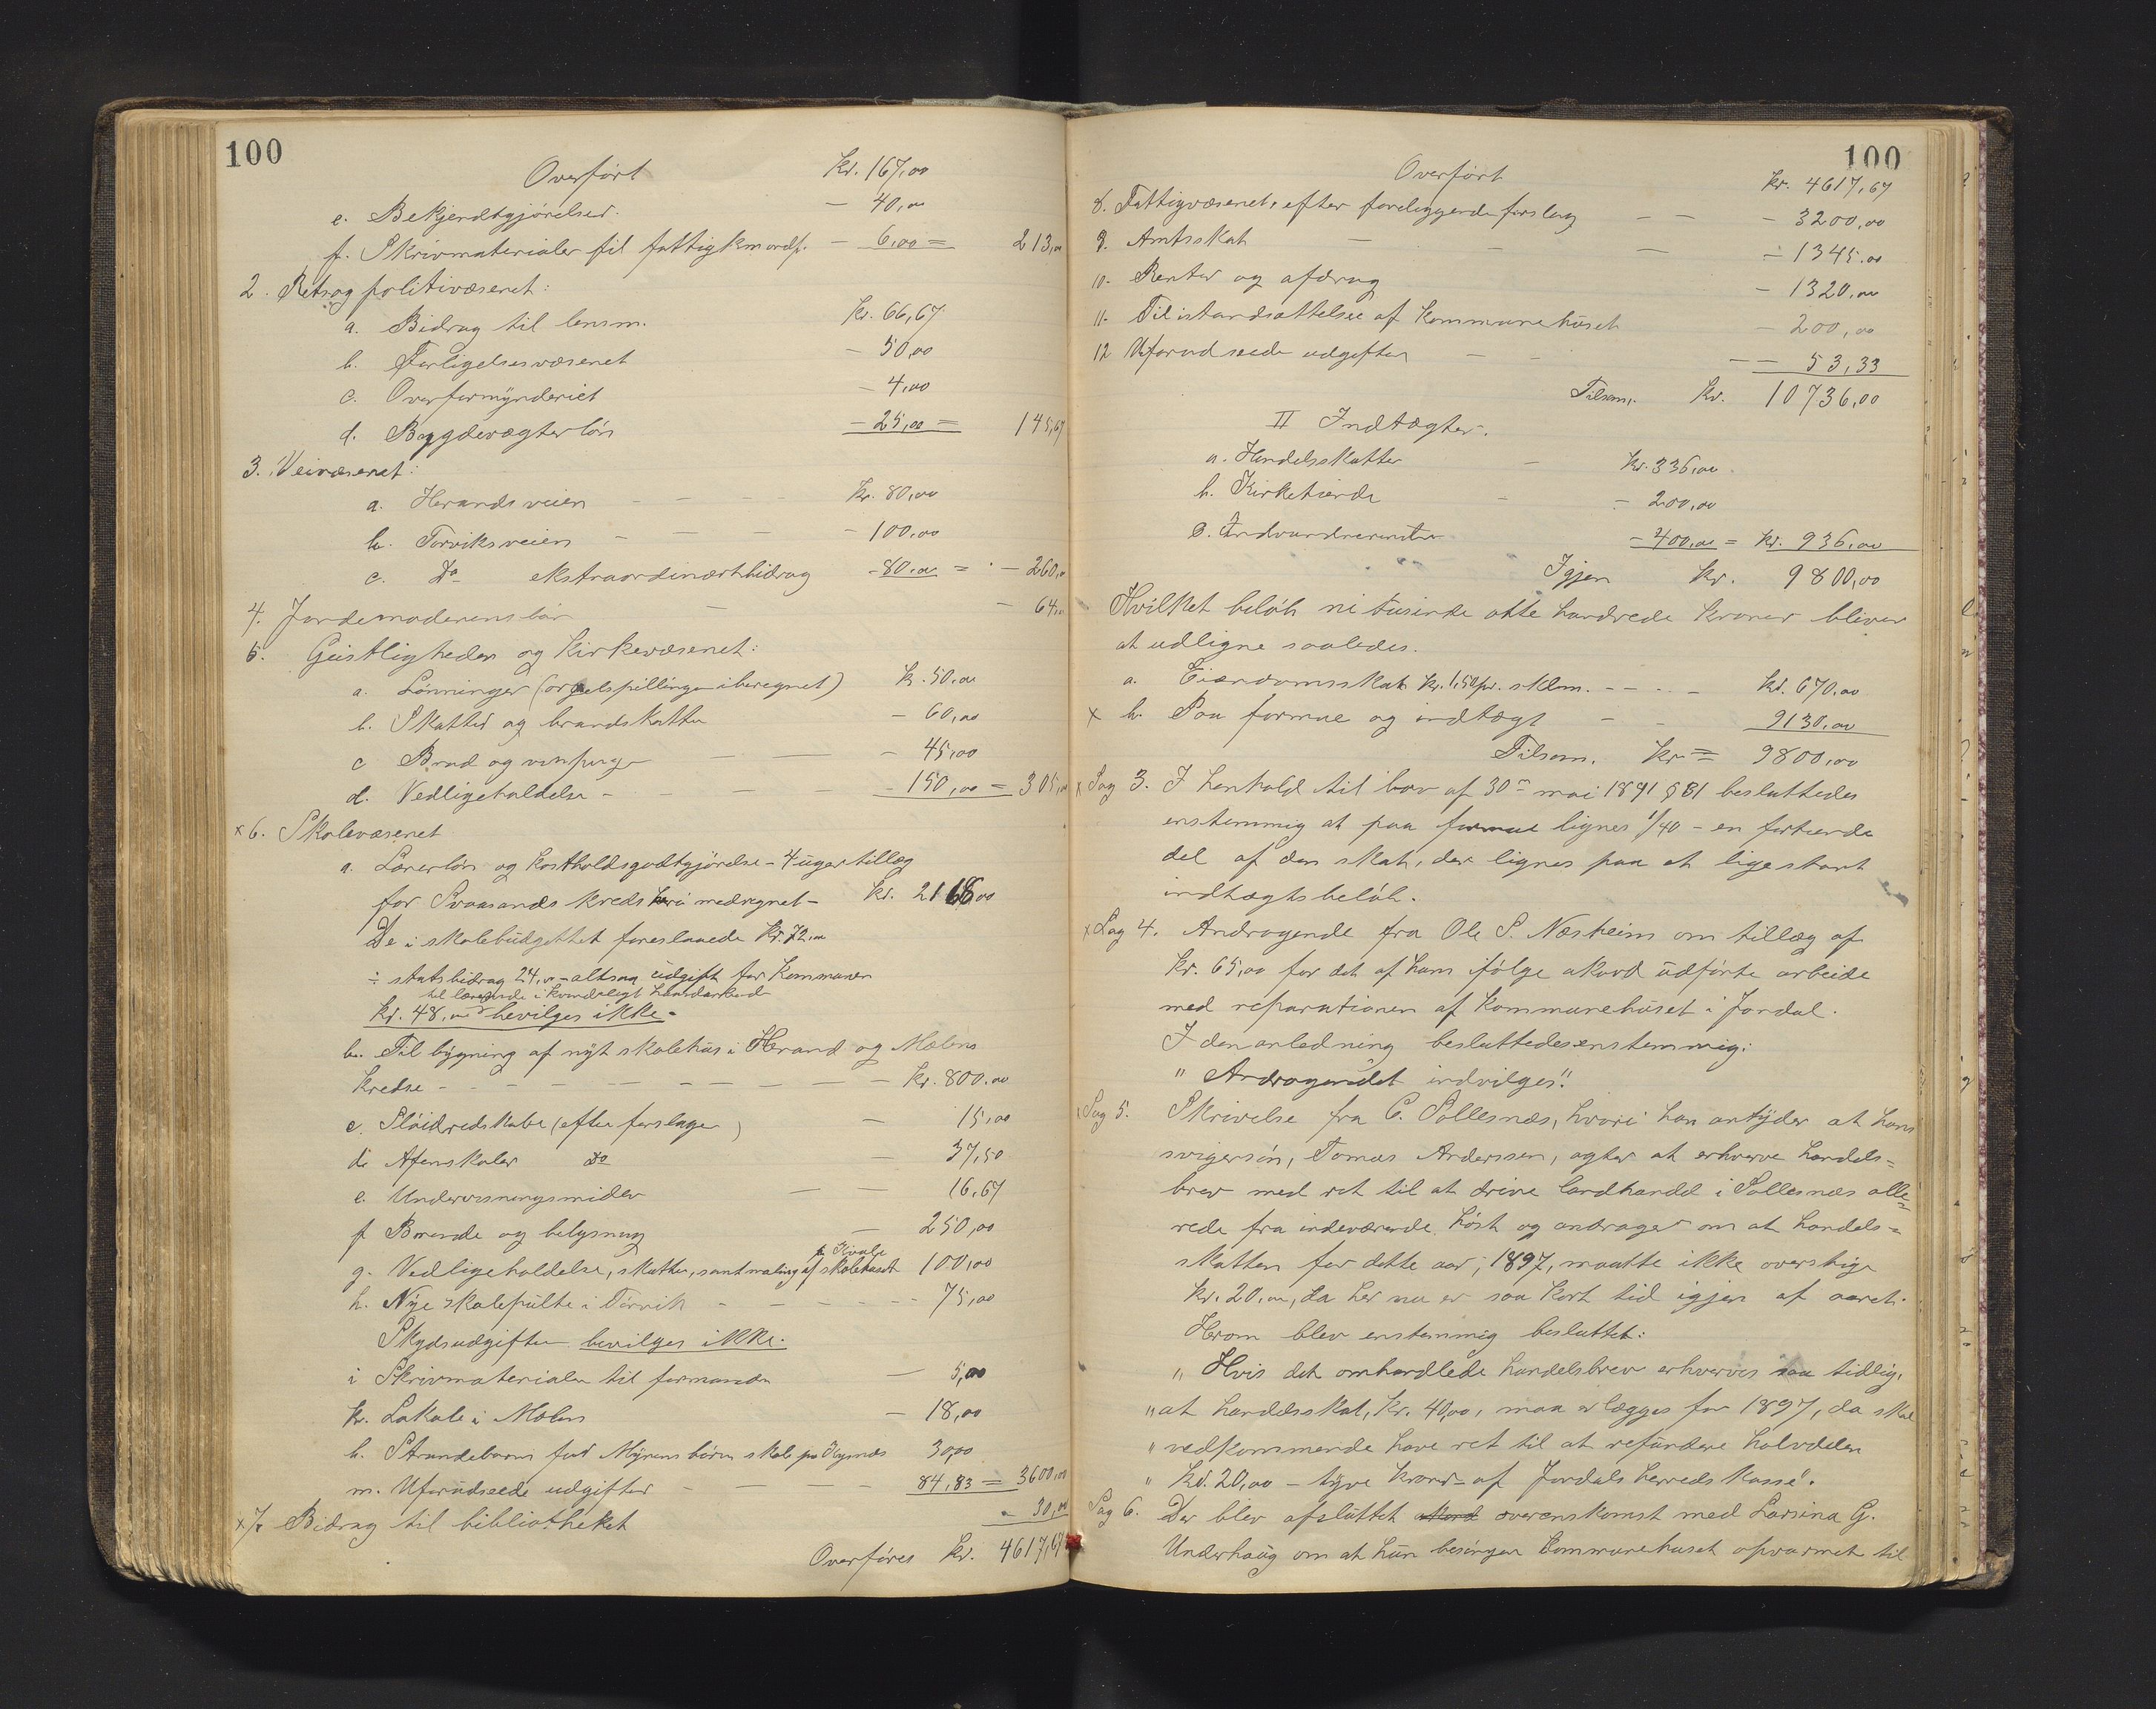 100
Overført Kr. 167,00
e. Bekjendtgjørelser. — 40,00
f. Skrivmaterialer til fattigkmordf. — 6,00 = 213,00
2. Rets og politivæsenet:
a. Bidrag til lensm. Kr. 66,67
b. Forligelsesvæsenet — 50,00
c. Overformynderiet — 4,00
d. Bygdevægterløn — 25,00 = 145,67
3. Veivæsenet:
a. Herandsveien — — — Kr. 80,00
b. Torviksveien — — — — 100,00
c. Do ekstraordinært bidrag - 80,00 = · — 260,00
4. Jordemoderens løn — — 64,00
5. Geistligheden og Kirkevæsenet:
a. Lønninger (orgelspillingen iberegnet) Kr. 50,00
b. Skatter og brandskatter — 60,00
c Brød og vinpenge — — — 45,00
d. Vedligeholdelse - — — — - 150,00 = 305,00
x 6. Skolevæsenet
a. Lærerløn og kostholdsgodtgjørelse - 4 ugers tillæg
for Svaasands kreds heri medregnet - Kr. 2168,00
De i skolebudgettet foreslaaede Kr. 72,00
÷ statsbidrag 24,00 - altsaa udgift for Kommunen
til lærerinde i kvindeligt haandarbeid
Kr. 48,00 bevilges ikke.
b. Til bygning af nyt skolehus i Herand og Mælens
kredse - - - — — — — — — — Kr. 800.00
c. Sløidredskaber (efter forslager) — 15,00
d. Aftenskoler Do — 37,50
e. Undervisningsmidler — — 16,67
f Brænde og belysning — 250,00
g. Vedligeholdelse, skatter, samt maling af skolehuset 100,00
h. Nye skolepulte i Tørvik - — - — - - - 75,00
Skydsudgifter bevilges ikke.
i Skrivmaterialer til formanden — 5,00
k. Lokale i Mælen — 18,00
l. Strandebarm for Myrens børns skole paa 30,00
m. Uforudseede udgifter - — — — 84,83 = 3600,00
x 7. Bidrag til bibliotheket - 30,00
Overføres Kr. 4617,67
100
Overført Kr. 4617,67
8. Fattigvæsenet, efter foreliggende forslag — — — 3200,00
9. Amtsskat — - — — — 1345.00
10. Renter og afdrag — 1320,00
11. Til istandsættelse af Kommunehuset — 200,00
12 Uforudseede udgifter — - — — 53,33
Tilsam. Kr. 10736,00
II Indtægter.
a. Handelsskatter — Kr. 336,00
b. Kirketiende - — 200,00
c. Indvundne renter — 400,00 = Kr. 936,00
Igjen Kr. 9800,00
Hvilket beløb ni tusinde otte hundrede kroner bliver
at udligne saaledes.
a. Eiendomsskat Kr. 1,50 pr. sklm. - — - - — Kr. 670,00
x b. Paa formue og indtægt — - 9130,00
Tilsam. Kr = 9800,00
x Sag 3. I henhold til lov af 30m mai 1891 § 31 besluttedes
enstemmig at paa formue lignes 1/40 - en førtiende
del af den skat, der lignes paa et ligestort
indtægtsbeløb.
x Sag 4. Andragende fra Ole S. Næsheim om tillæg af
Kr. 65,00 for det af ham ifølge akord udførte arbeide
med reparationen af Kommunehuset i Jondal.
I den anledning besluttedes enstemmig:
" Andragendet indvilges".
x Sag 5. Skrivelse fra C. Sollesnæs, hvori han antyder at hans
svigersøn, Tomas Anderssen, agter at erhverve handels=
brev med ret til at drive landhandel i Sollesnæs alle=
rede fra indeværende høst og andrager om at handels=
skatten for dette aar, 1897, maatte ikke overstige
Kr. 20,00, da her nu er saa kort tid igjen af aaret.
Herom blev enstemmig besluttet:
" Hvis det omhandlede handelsbrev erhverves saa tidlig,
" at handelsskat, Kr. 40,00, maa erlægges for 1897, da skal
" vedkommende have ret til at refundere halvdelen
" Kr. 20,00 - tyve kroner - af Jondals herredskasse".
Sag 6. Der blev afsluttet akord overenskomst med Larsina G.
Underhaug om at hun besørger kommunehuset opvarmet til